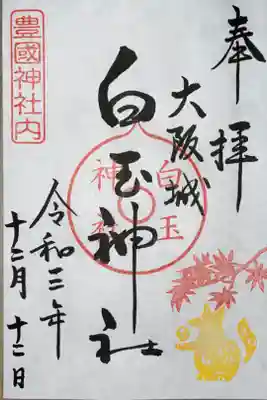 奉拝
大阪城
白玉神社
白玉
神社
豊國神社内
令和三年
十二月十二日